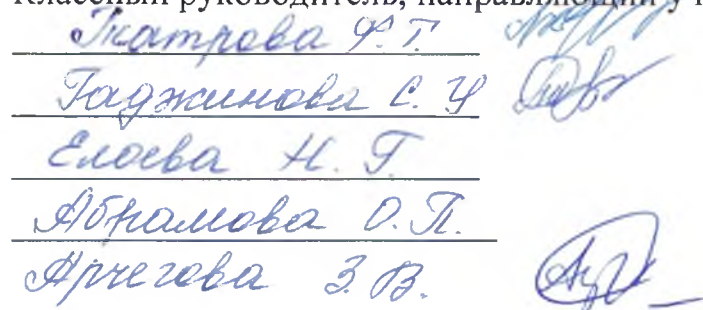 Классный руководитель, направляющий у
Гатрова Ф.Т.
Гаджинова С. У
Елоева Н. Г
Абрамова О.П.
Арчегова З.В.